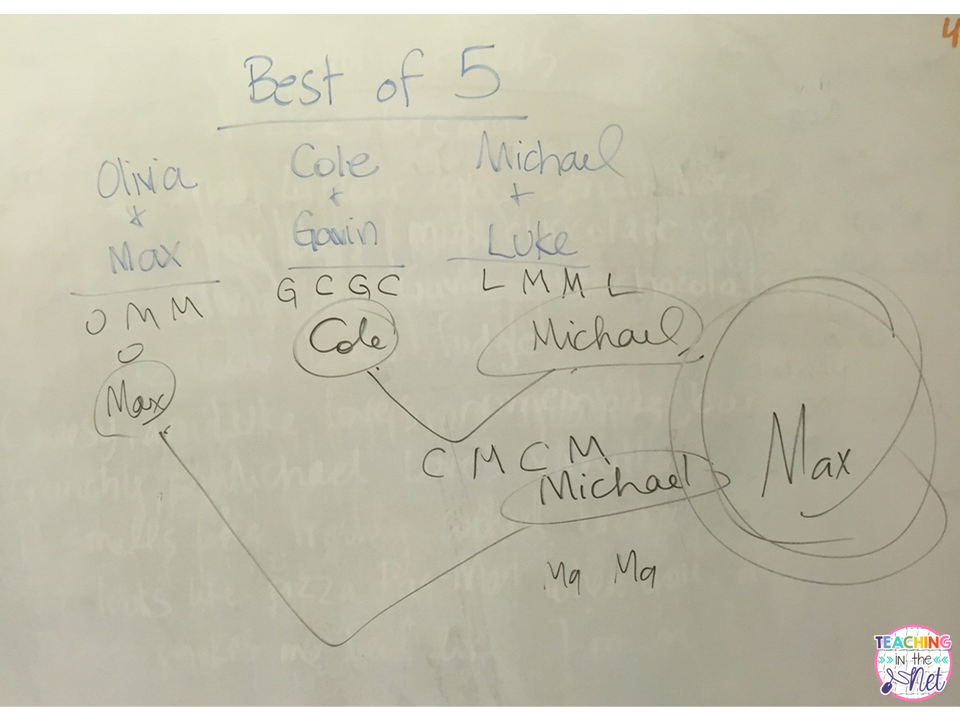 4
Best of 5
Olivia
+
Max
O M M
O
Max
Cole
+
Gavin
G C G C
Cole
Michael
+
Luke
L M M L
Michael
C M C M
Michael
Ma Ma
Max
TEACHING
IN the
Net